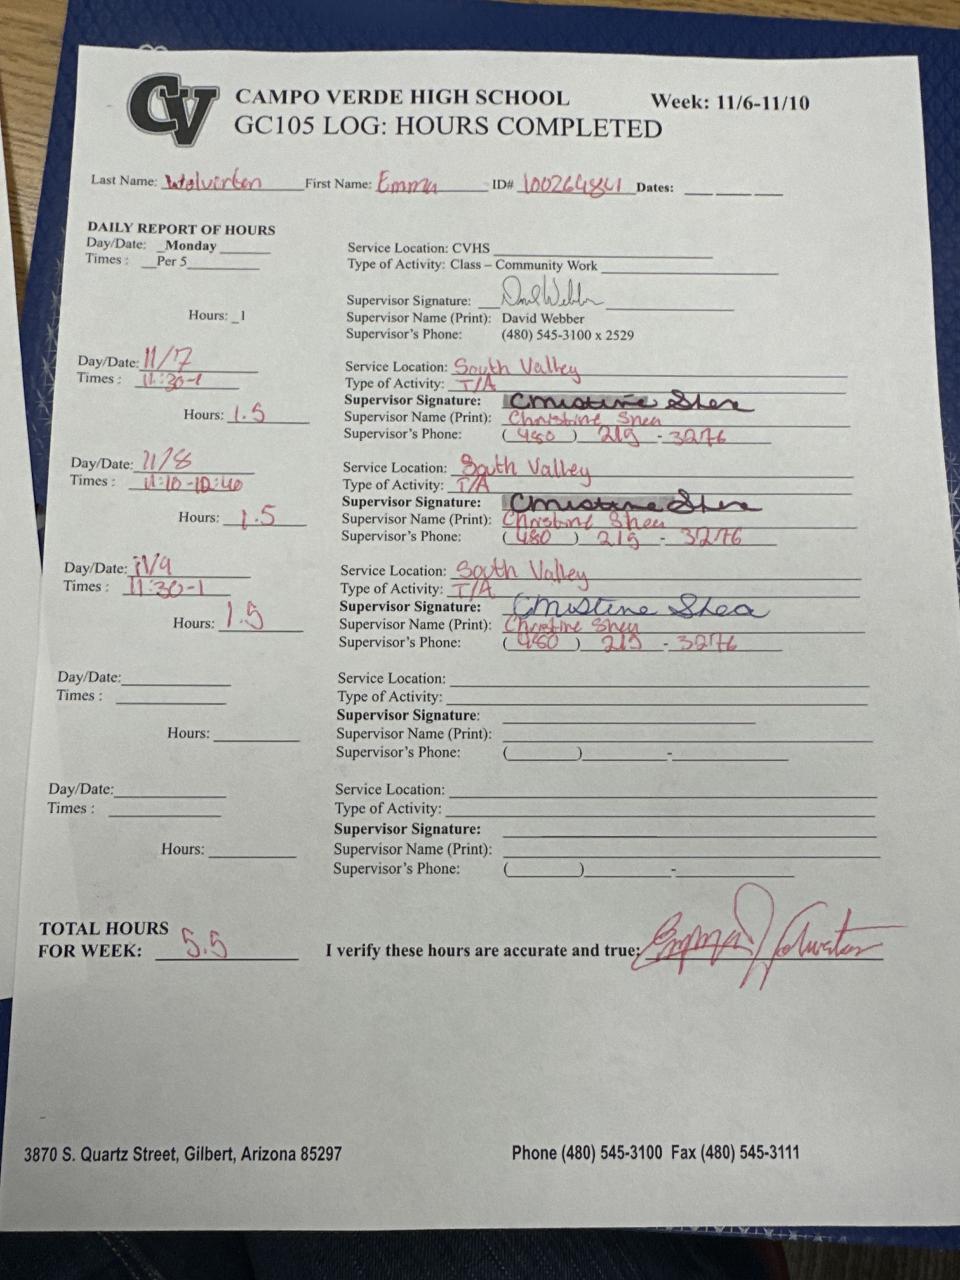 CV
CAMPO VERDE HIGH SCHOOL Week: 11/6-11/10
GC105 LOG: HOURS COMPLETED
Last Name: Wolverton First Name: Emma ID# 100264841 Dates: ___ ___ ___
DAILY REPORT OF HOURS
Day/Date: _Monday
Times : __Per 5
Hours: _1
Service Location: CVHS
Type of Activity: Class – Community Work
Supervisor Signature: David Webber
Supervisor Name (Print): David Webber
Supervisor's Phone: (480) 545-3100 x 2529
Day/Date: 11/7
Times : 11:30-1
Hours: 1.5
Service Location: South Valley
Type of Activity: T/A
Supervisor Signature: Christine Shea
Supervisor Name (Print): Christine Shea
Supervisor's Phone: (480) 219-3276
Day/Date: 11/8
Times : 11:10-12:40
Hours: 1.5
Service Location: South Valley
Type of Activity: T/A
Supervisor Signature: Christine Shea
Supervisor Name (Print): Christine Shea
Supervisor's Phone: (480) 219-3276
Day/Date: 11/9
Times : 11:30-1
Hours: 1.5
Service Location: South Valley
Type of Activity: T/A
Supervisor Signature: Christine Shea
Supervisor Name (Print): Christine Shea
Supervisor's Phone: (480) 219-3276
Day/Date:
Times :
Hours:
Service Location:
Type of Activity:
Supervisor Signature:
Supervisor Name (Print):
Supervisor's Phone: ( ) -
Day/Date:
Times :
Hours:
Service Location:
Type of Activity:
Supervisor Signature:
Supervisor Name (Print):
Supervisor's Phone: ( ) -
TOTAL HOURS
FOR WEEK: 5.5
I verify these hours are accurate and true: Emma Wolverton
3870 S. Quartz Street, Gilbert, Arizona 85297 Phone (480) 545-3100 Fax (480) 545-3111